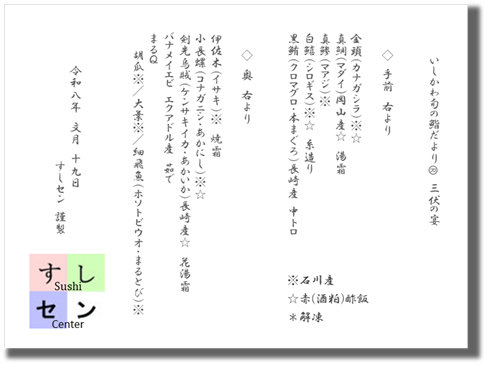 いしかわ旬の鮨だより⑳ 三伏の宴
◇ 手前 右より
金頭(カナガシラ)※☆
真鯛(マダイ)岡山産☆ 湯霜
真鰺(マアジ)※
白鱚(シロギス)※☆ 糸造り
黒鮪(クロマグロ・本まぐろ)長崎産 中トロ
◇ 奥 右より
伊佐木(イサキ)※ 焼霜
小長螺(コナガニシ・あかにし)※☆
剣先烏賊(ケンサキイカ・あかいか)長崎産☆ 花湯霜
バナメイエビ エクアドル産 茹で
まるQ
胡瓜※/大葉※/細飛魚(ホソトビウオ・まるとび)※
※石川産
☆赤(酒粕)酢飯
＊解凍
令和八年 文月 十九日
すしセン 謹製
すし
Sushi
セン
Center